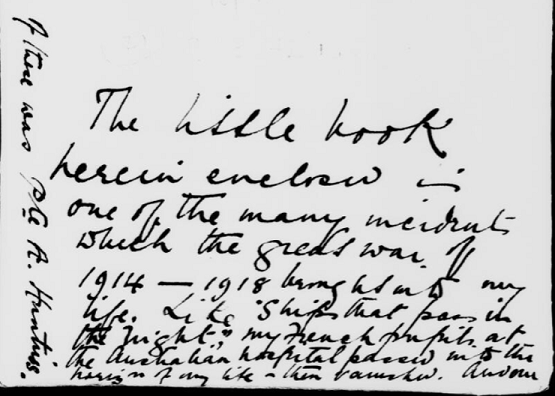 The little book
herein enclosed is
one of the many incidents
which the great war of
1914 — 1918 brought into my
life. Like "Ships that pass in
the Night", my French pupils at
the Australian hospital passed into the
horizon of my life - then vanished. And one
of these was Pte A.